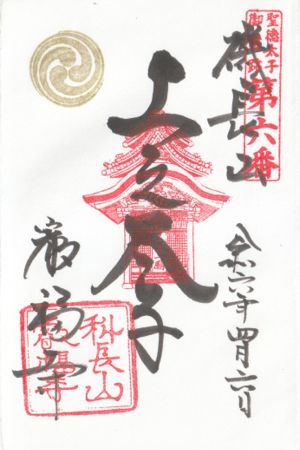 聖徳太子
第六番
磯長山
上之太子
令和六年四月六日
叡福寺
科長山
叡福寺